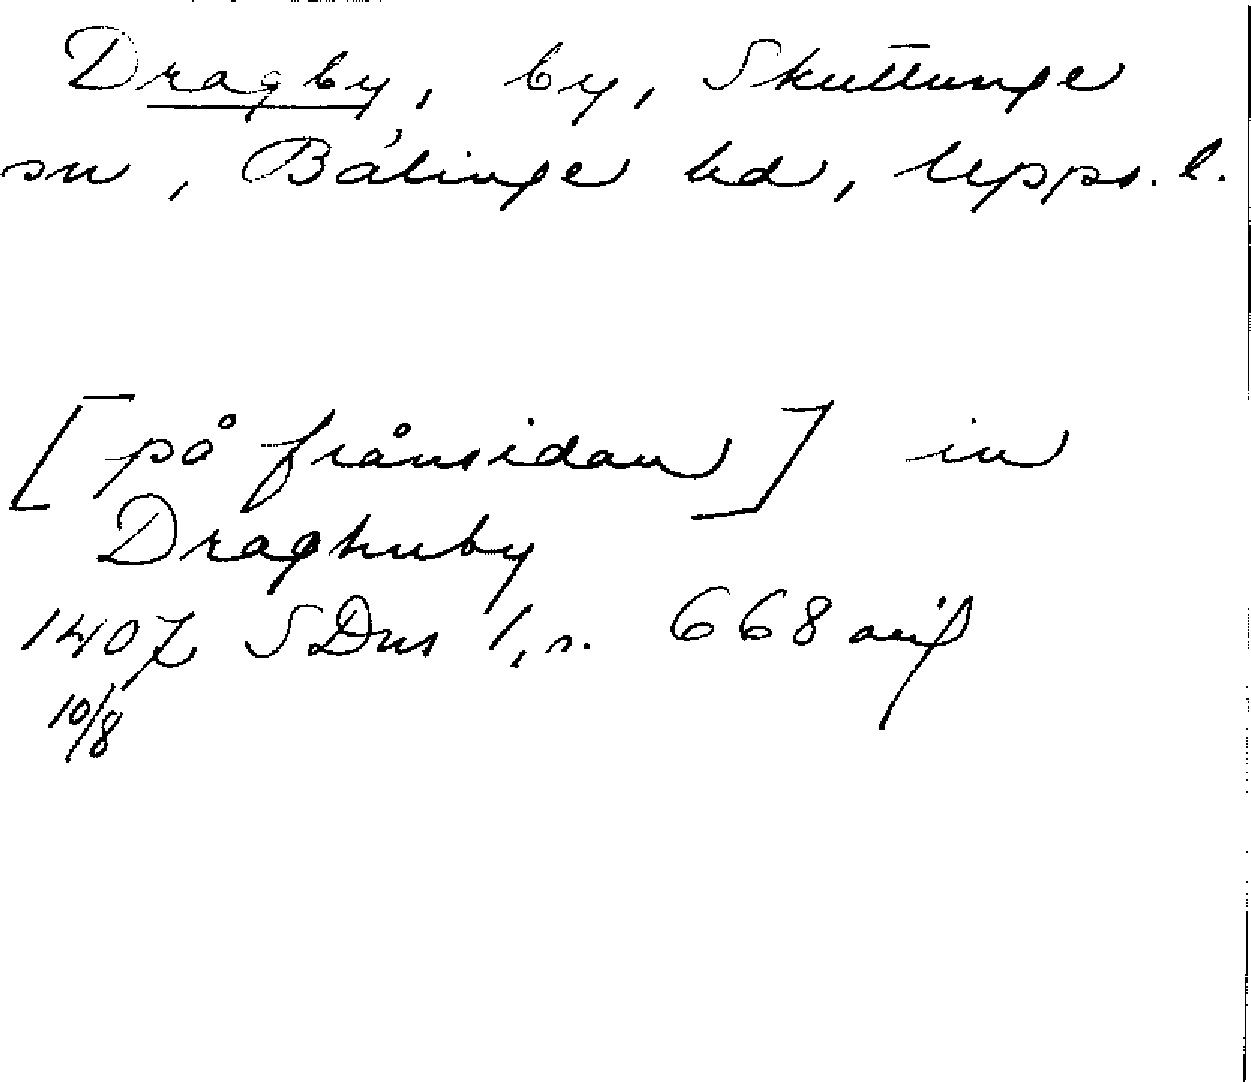 Dragby, by, Skuttunge
sn, Bälinge hd, Upps. l.
[på frånsidan] in
Draghuby
1407 SDns 1, s. 668 avs
10/8